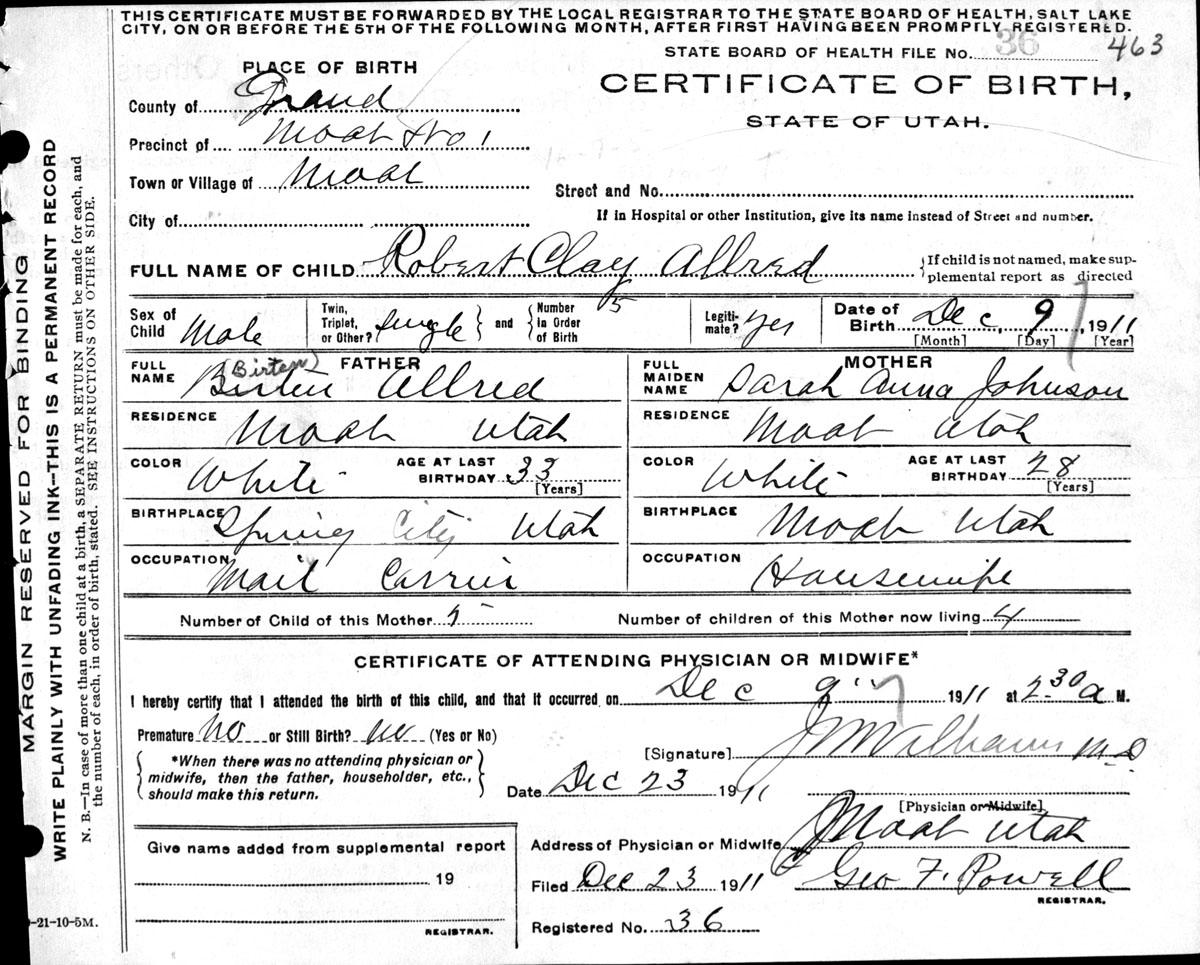 THIS CERTIFICATE MUST BE FORWARDED BY THE LOCAL REGISTRAR TO THE STATE BOARD OF HEALTH, SALT LAKE
CITY, ON OR BEFORE THE 5TH OF THE FOLLOWING MONTH, AFTER FIRST HAVING BEEN PROMPTLY REGISTERED.
STATE BOARD OF HEALTH FILE No. 36 463
PLACE OF BIRTH
CERTIFICATE OF BIRTH,
STATE OF UTAH.
County of Grand
Precinct of Moab No 1
Town or Village of Moab
Street and No.
City of
If in Hospital or other Institution, give its name instead of Street and number.
FULL NAME OF CHILD Robert Clay Allred
{If child is not named, make supplemental report as directed
Sex of Child Male
Twin, Triplet, or Other? single } and { Number in Order of Birth 5
Legitimate? Yes
Date of Birth Dec, 9, 1911
[Month] [Day] [Year]
FATHER
FULL NAME Birten (Birten) Allred
RESIDENCE Moab Utah
COLOR White
AGE AT LAST BIRTHDAY 33 [Years]
BIRTHPLACE Spring City Utah
OCCUPATION Mail Carrier
MOTHER
FULL MAIDEN NAME Sarah Anna Johnson
RESIDENCE Moab Utah
COLOR White
AGE AT LAST BIRTHDAY 28 [Years]
BIRTHPLACE Moab Utah
OCCUPATION Housewife
Number of Child of this Mother 5
Number of children of this Mother now living 4
CERTIFICATE OF ATTENDING PHYSICIAN OR MIDWIFE*
I hereby certify that I attended the birth of this child, and that it occurred on Dec 9" 1911 at 2-30 a M.
Premature No or Still Birth? no (Yes or No)
{ *When there was no attending physician or
midwife, then the father, householder, etc.,
should make this return. }
[Signature] J W Williams M.D
Date Dec 23 1911
[Physician or Midwife]
Address of Physician or Midwife Moab Utah
Filed Dec 23 1911 Geo F. Powell
REGISTRAR.
Registered No. 36
Give name added from supplemental report
19
REGISTRAR.
-21-10-5M.
MARGIN RESERVED FOR BINDING
WRITE PLAINLY WITH UNFADING INK--THIS IS A PERMANENT RECORD
N. B.—In case of more than one child at a birth, a SEPARATE RETURN must be made for each, and
the number of each, in order of birth, stated. SEE INSTRUCTIONS ON OTHER SIDE.